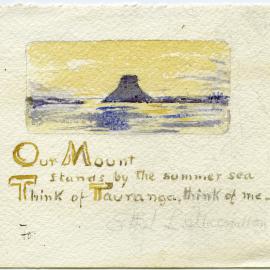 Our Mount
stands by the summer sea
Think of Tauranga, think of me_